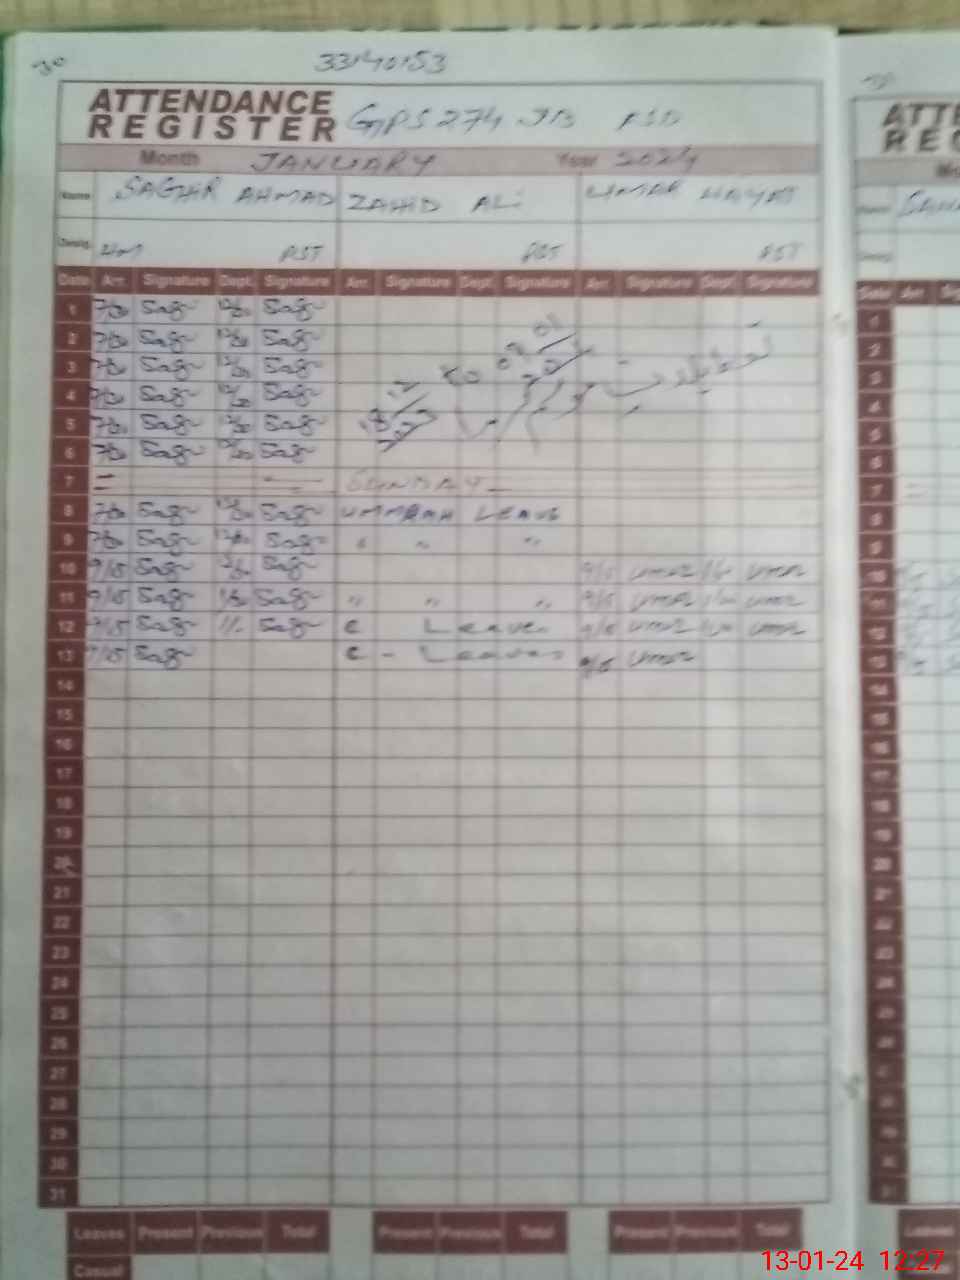 30
33140153
ATTENDANCE
REGISTER GPS 274 JB FSD
Month JANUARY Year 2024
Name SAGHIR AHMAD ZAHID ALI UMAR HAYAT
Desig. PST PST PST
Date Arr. Signature Dept. Signature Arr. Signature Dept. Signature Arr. Signature Dept. Signature
1 7/30 Sagr 12/30 Sagr
2 7/30 Sagr 12/30 Sagr
3 7/30 Sagr 12/30 Sagr
4 7/30 Sagr 12/30 Sagr
5 7/30 Sagr 12/30 Sagr
6 7/30 Sagr 12/30 Sagr
تعطیلات موسم سرما
18 12 to 09 01
7 = SUNDAY
8 7/30 Sagr 12/30 Sagr UMMRAH LEAVE
9 7/30 Sagr 12/30 Sagr " " "
10 9/15 Sagr Sagr 9/15 Umar Umar
11 9/15 Sagr Sagr " " " 9/15 Umar Umar
12 9/15 Sagr Sagr C Leave 9/15 Umar Umar
13 9/15 Sagr C - Leave 9/15 Umar
14
15
16
17
18
19
20
21
22
23
24
25
26
27
28
29
30
31
Leaves Present Previous Total Present Previous Total Present Previous Total
Casual
13-01-24 12:27